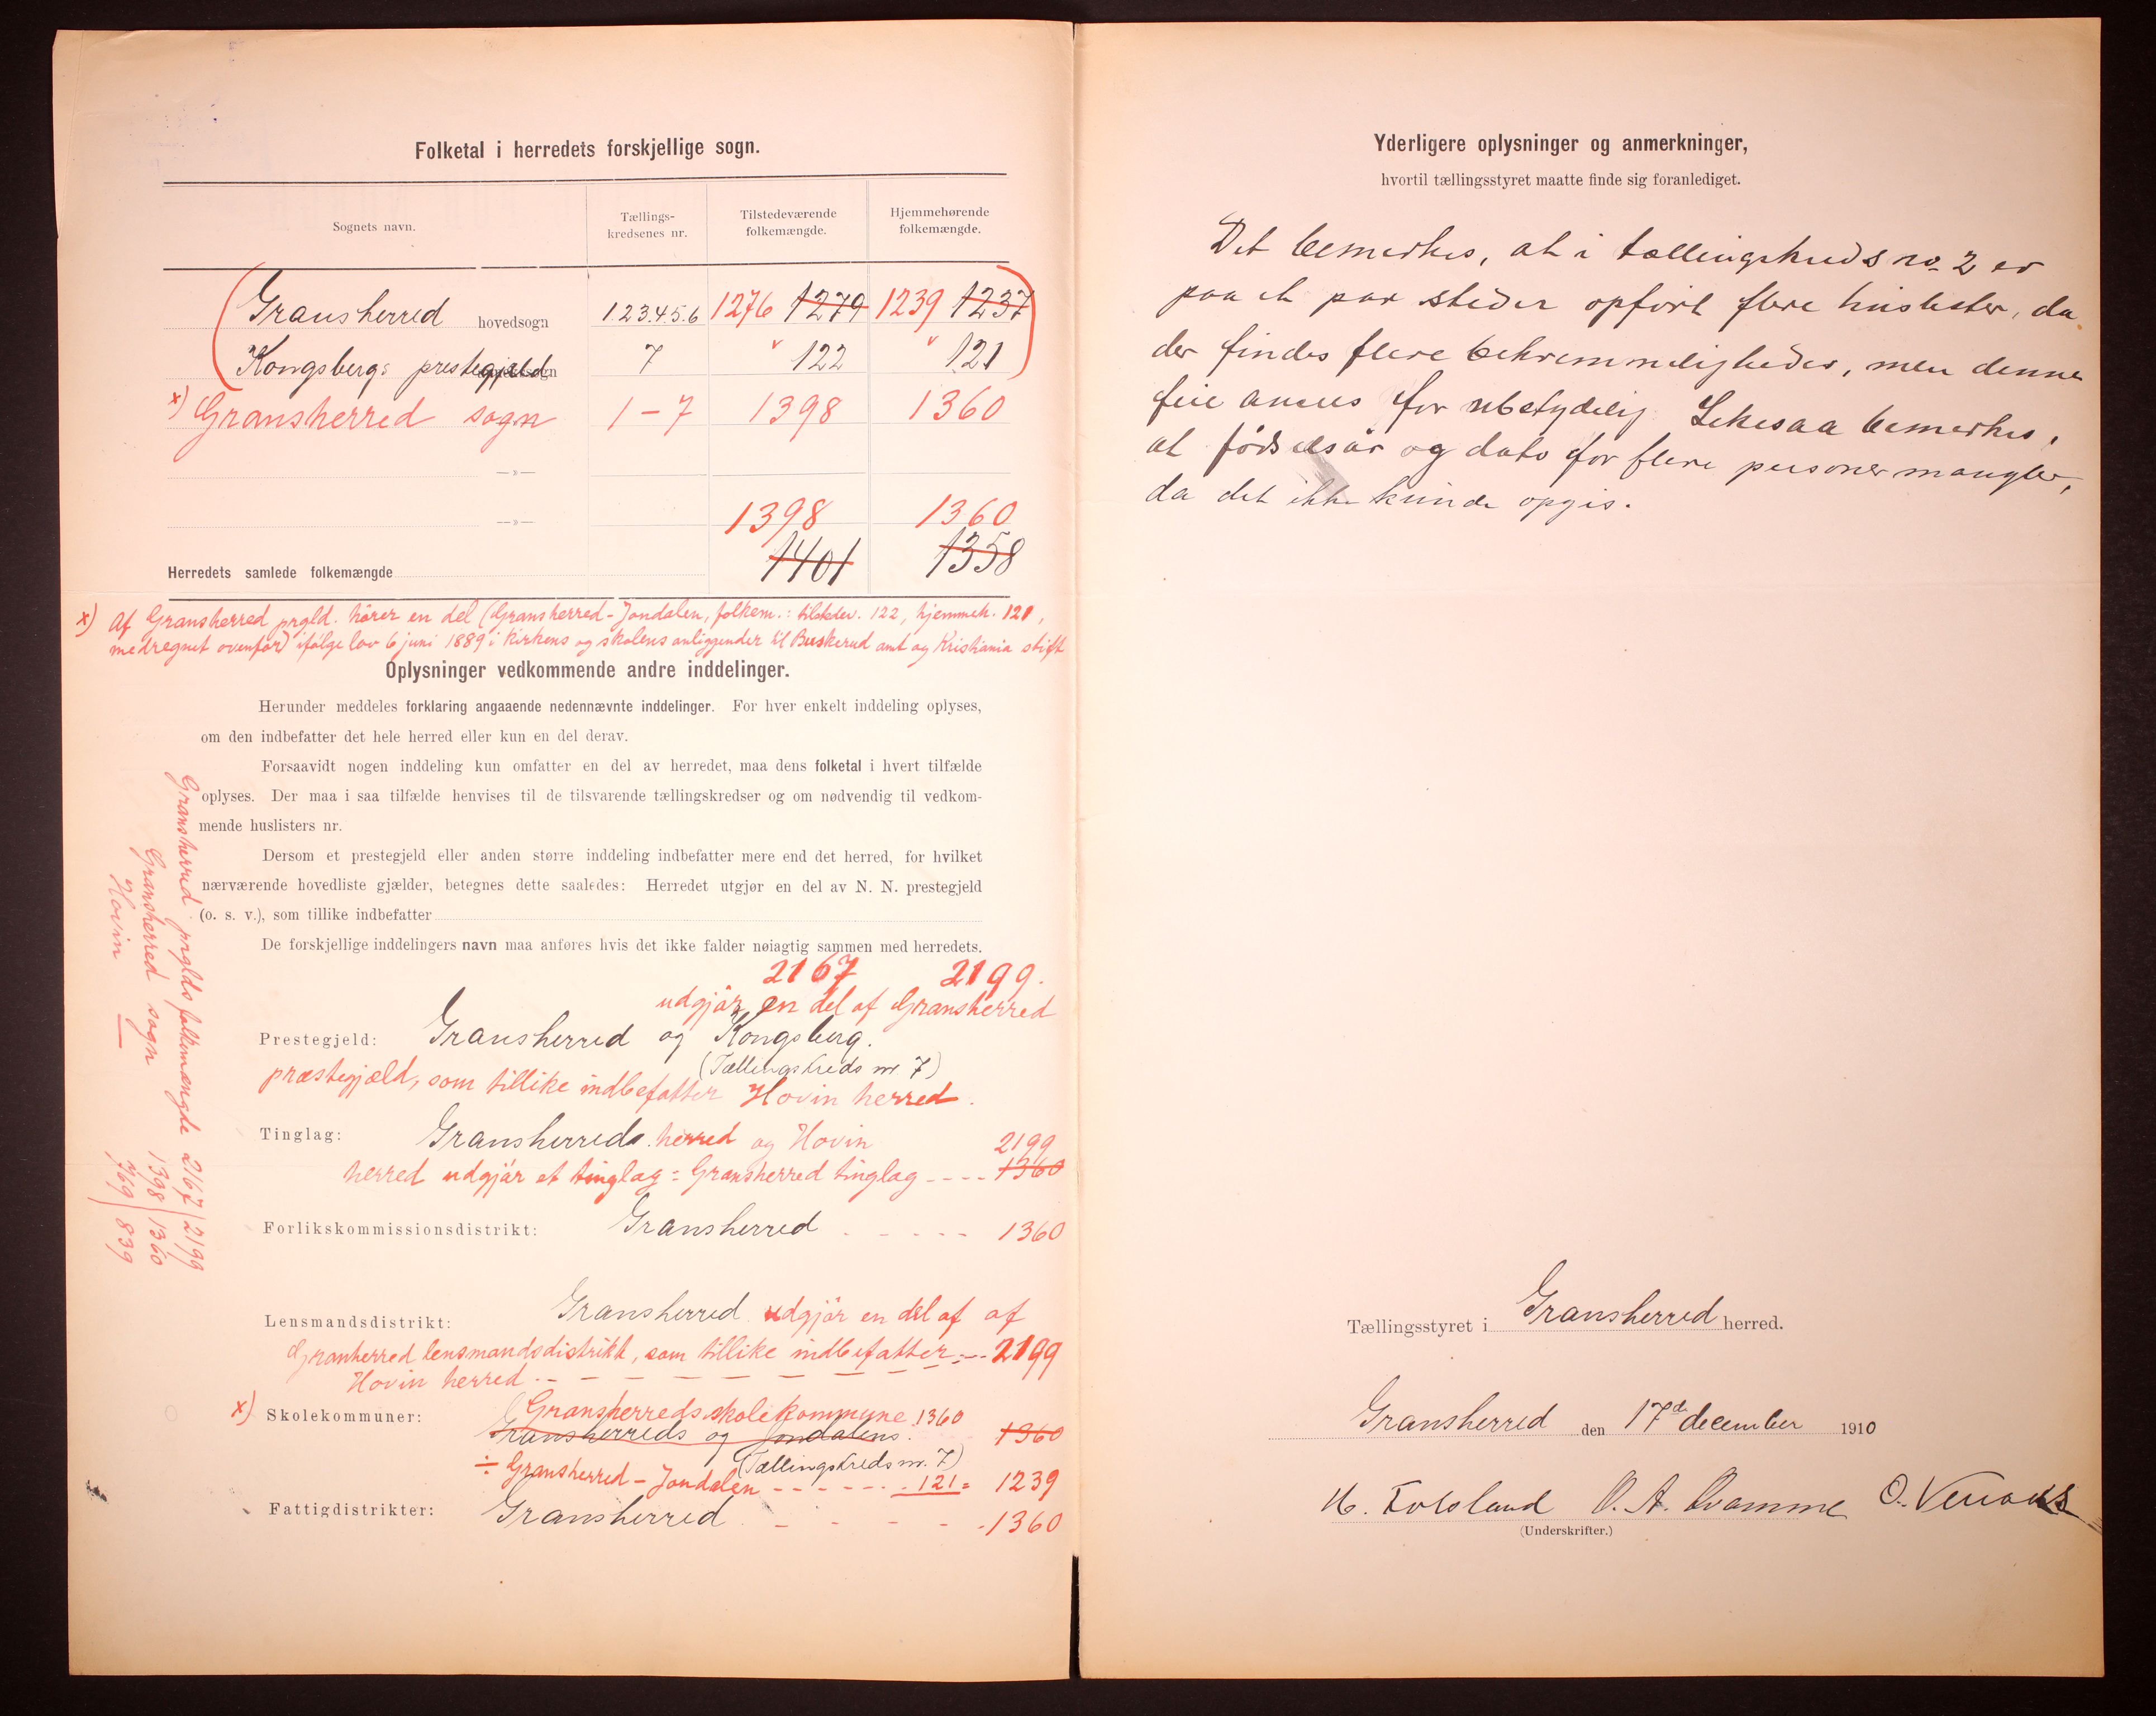 Folketal i herredets forskjellige sogn.
Sognets navn. Tællings-kredsenes nr. Tilstedeværende folkemængde. Hjemmehørende folkemængde.
Gransherred hovedsogn 1.2.3.4.5.6 1276 1279 1239 1237
Kongsbergs prestegjeld 7 " 122 " 121
x) Gransherred sogn 1-7 1398 1360
—»—
—»— 1398 1360
Herredets samlede folkemængde 1401 1358
x) Af Gransherred prgld. hører en del (Gransherred-Jondalen, folkem.: tilstdev. 122, hjemmeh. 121,
medregnet ovenfor) ifølge lov 6 juni 1889 i kirkens og skolens anliggender til Buskerud amt og Kristiania stift
Oplysninger vedkommende andre inddelinger.
Herunder meddeles forklaring angaaende nedennævnte inddelinger. For hver enkelt inddeling oplyses,
om den indbefatter det hele herred eller kun en del derav.
Forsaavidt nogen inddeling kun omfatter en del av herredet, maa dens folketal i hvert tilfælde
oplyses. Der maa i saa tilfælde henvises til de tilsvarende tællingskredser og om nødvendig til vedkom-
mende huslisters nr.
Dersom et prestegjeld eller anden større inddeling indbefatter mere end det herred, for hvilket
nærværende hovedliste gjælder, betegnes dette saaledes: Herredet utgjør en del av N. N. prestegjeld
(o. s. v.), som tillike indbefatter
De forskjellige inddelingers navn maa anføres hvis det ikke falder nøiagtig sammen med herredets.
2167 2199.
udgjør en del af Gransherred
Prestegjeld: Gransherred og Kongsberg.
(Tællingskreds nr 7)
præstegjæld, som tillike indbefatter Hovin herred.
Tinglag: Gransherreds herred og Hovin 2199
herred udgjør et tinglag = Gransherred tinglag - - - - 1360
Forlikskommissionsdistrikt: Gransherred - - - - 1360
Lensmandsdistrikt: Gransherred udgjør en del af af
Granherred lensmandsdistrikt, som tillike indbefatter - - 2199
Hovin herred - - - - - - -
x) Skolekommuner: Gransherreds skolekommune 1360
Gransherreds og Jondalens. 1360
(Tællingskreds nr. 7)
÷ Gransherred - Jondalen - - - - - 121 = 1239
Fattigdistrikter: Gransherred - - - - 1360
Gransherred prglds folkemængde 2167 / 2199
Gransherred sogn 1398 / 1360
Hovin — 769 / 839
Yderligere oplysninger og anmerkninger,
hvortil tællingsstyret maatte finde sig foranlediget.
Det bemerkes, at i tællingskreds no 2 er
paa et par steder opført flere huslister, da
der findes flere bekvemmeligheder, men denne
feil ansees for ubetydelig. Likesaa bemerkes,
at fødselsår og dato for flere personer mangler,
da det ikke kunde opgis.
Tællingsstyret i Gransherred herred.
Gransherred den 17de december 1910
O. A. Kvamme O.
(Underskrifter.)